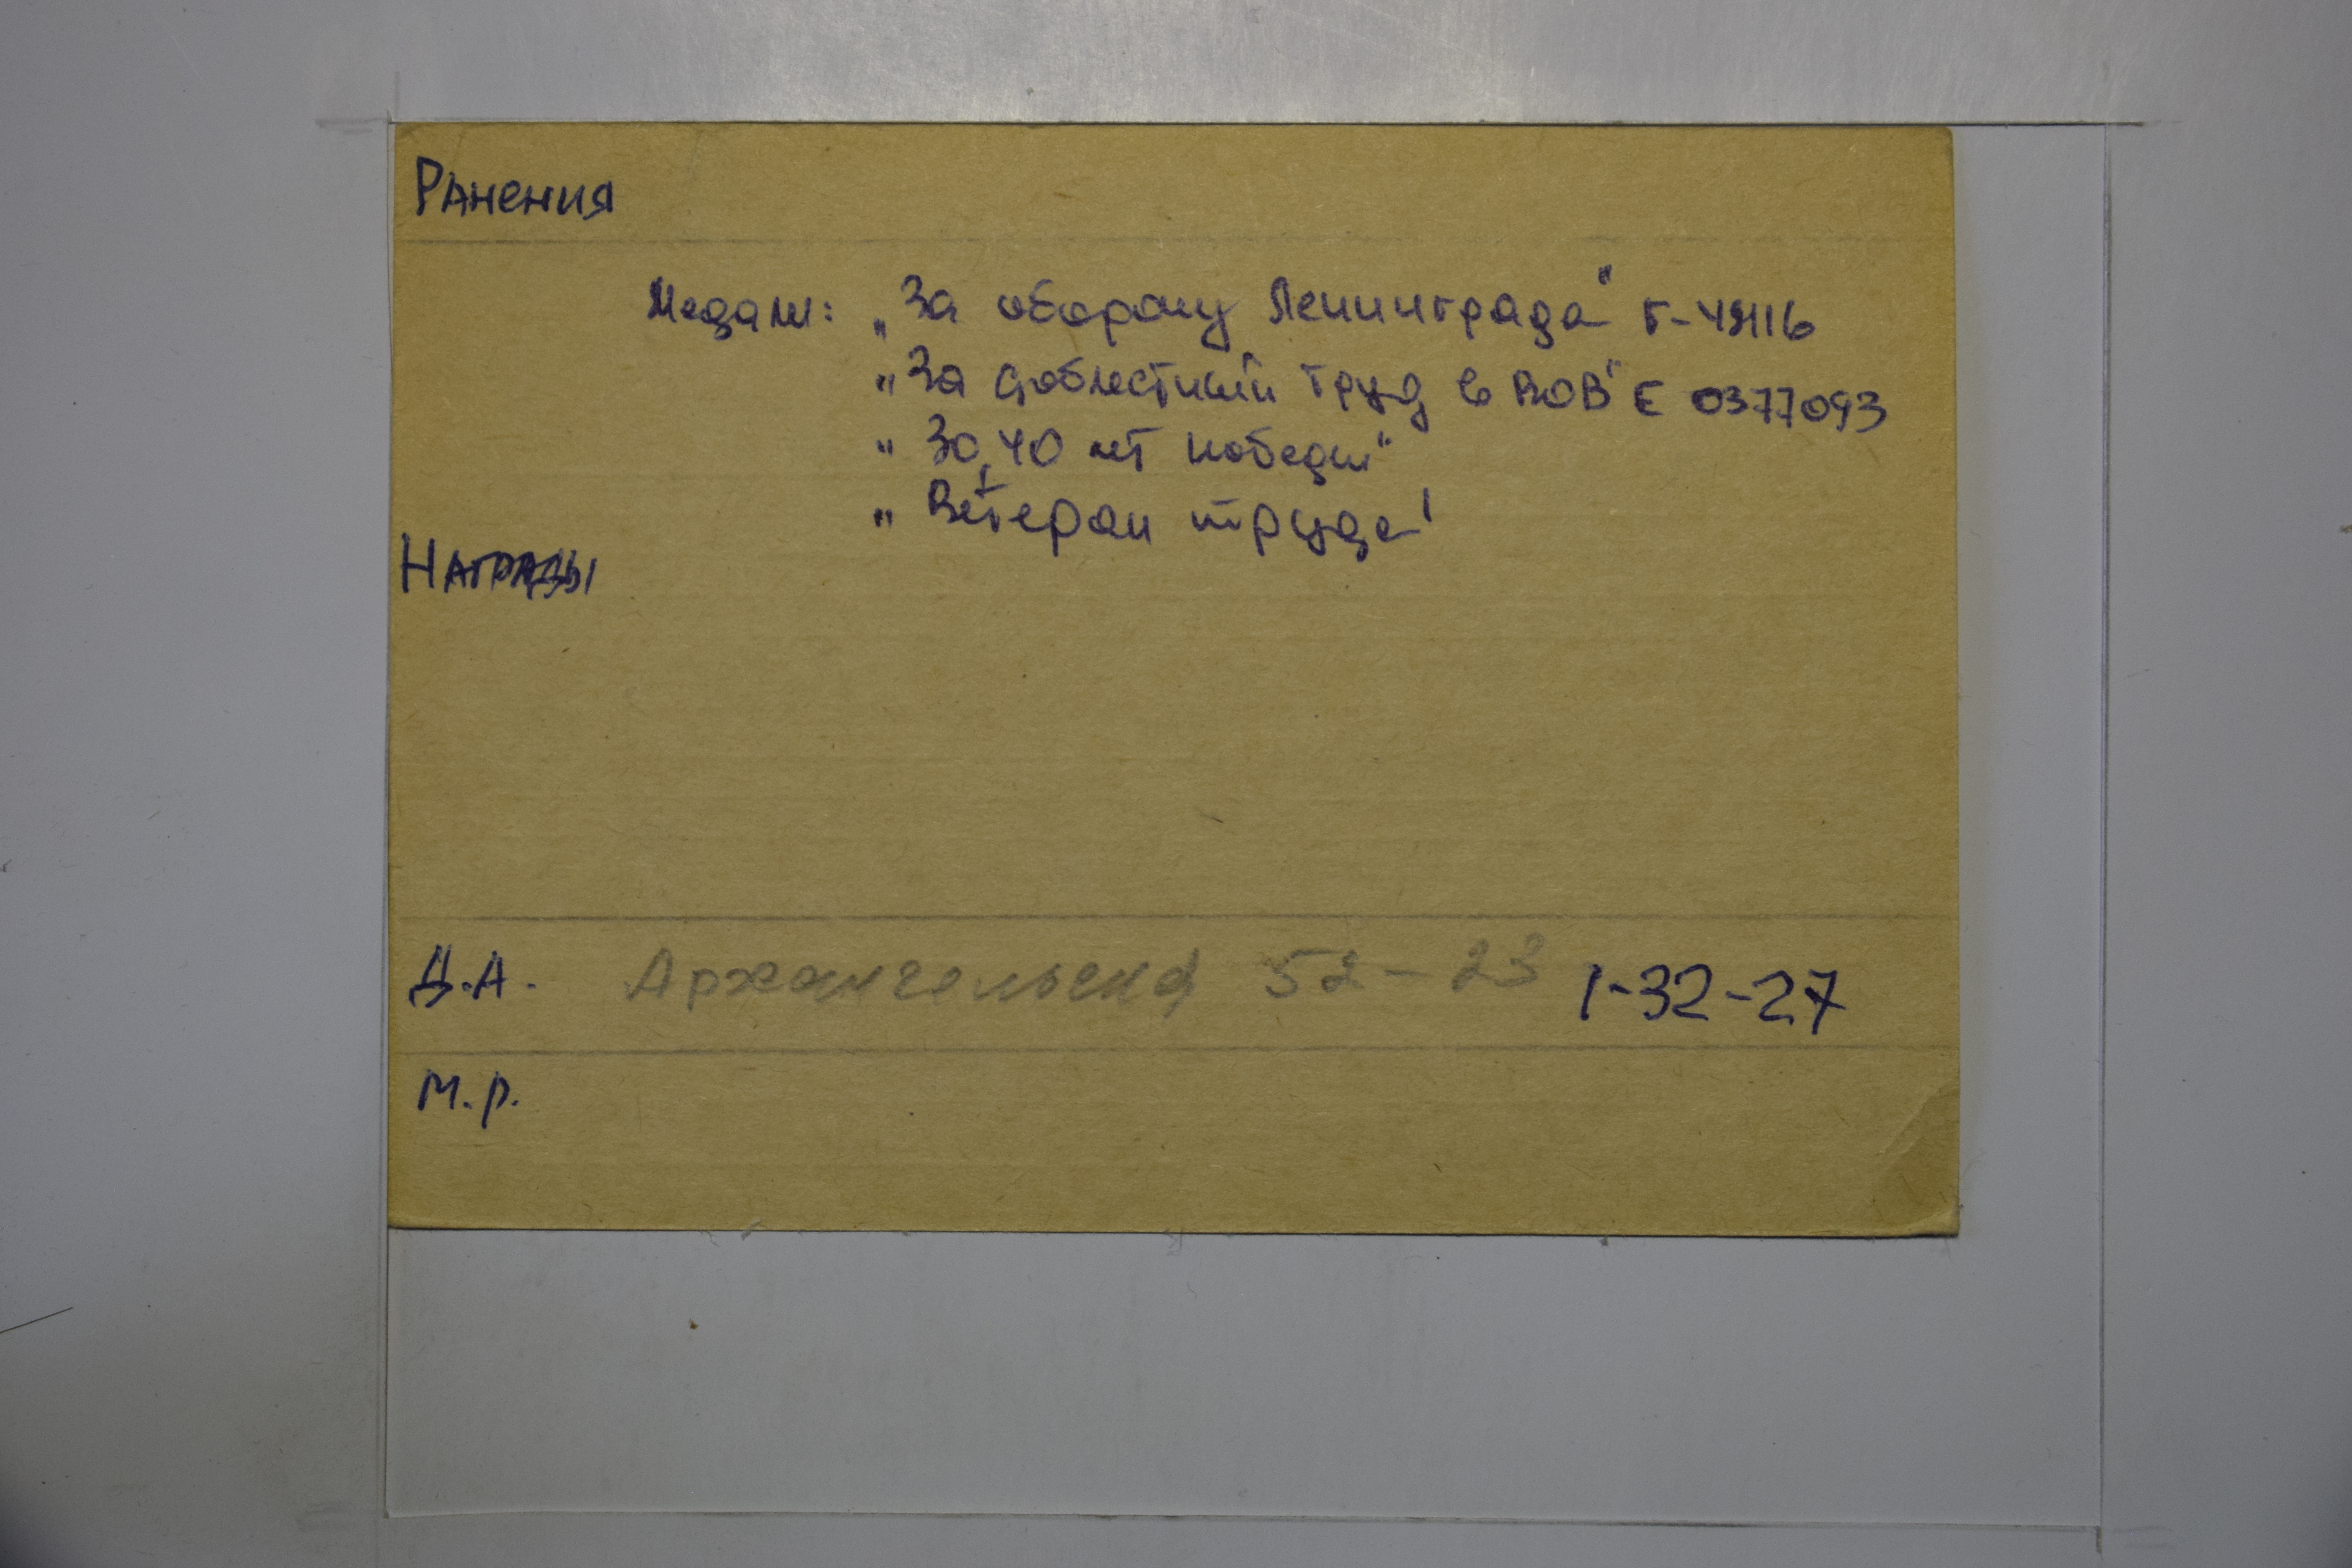 Ранения
Медали: „За оборону Ленинграда"
„За доблестный труд в ВОВ" Е 0377093
„30,40 лет победы"
„Ветеран труда"
Награды
Д.А. Архангельская 52-23 1-32-27
М.р.